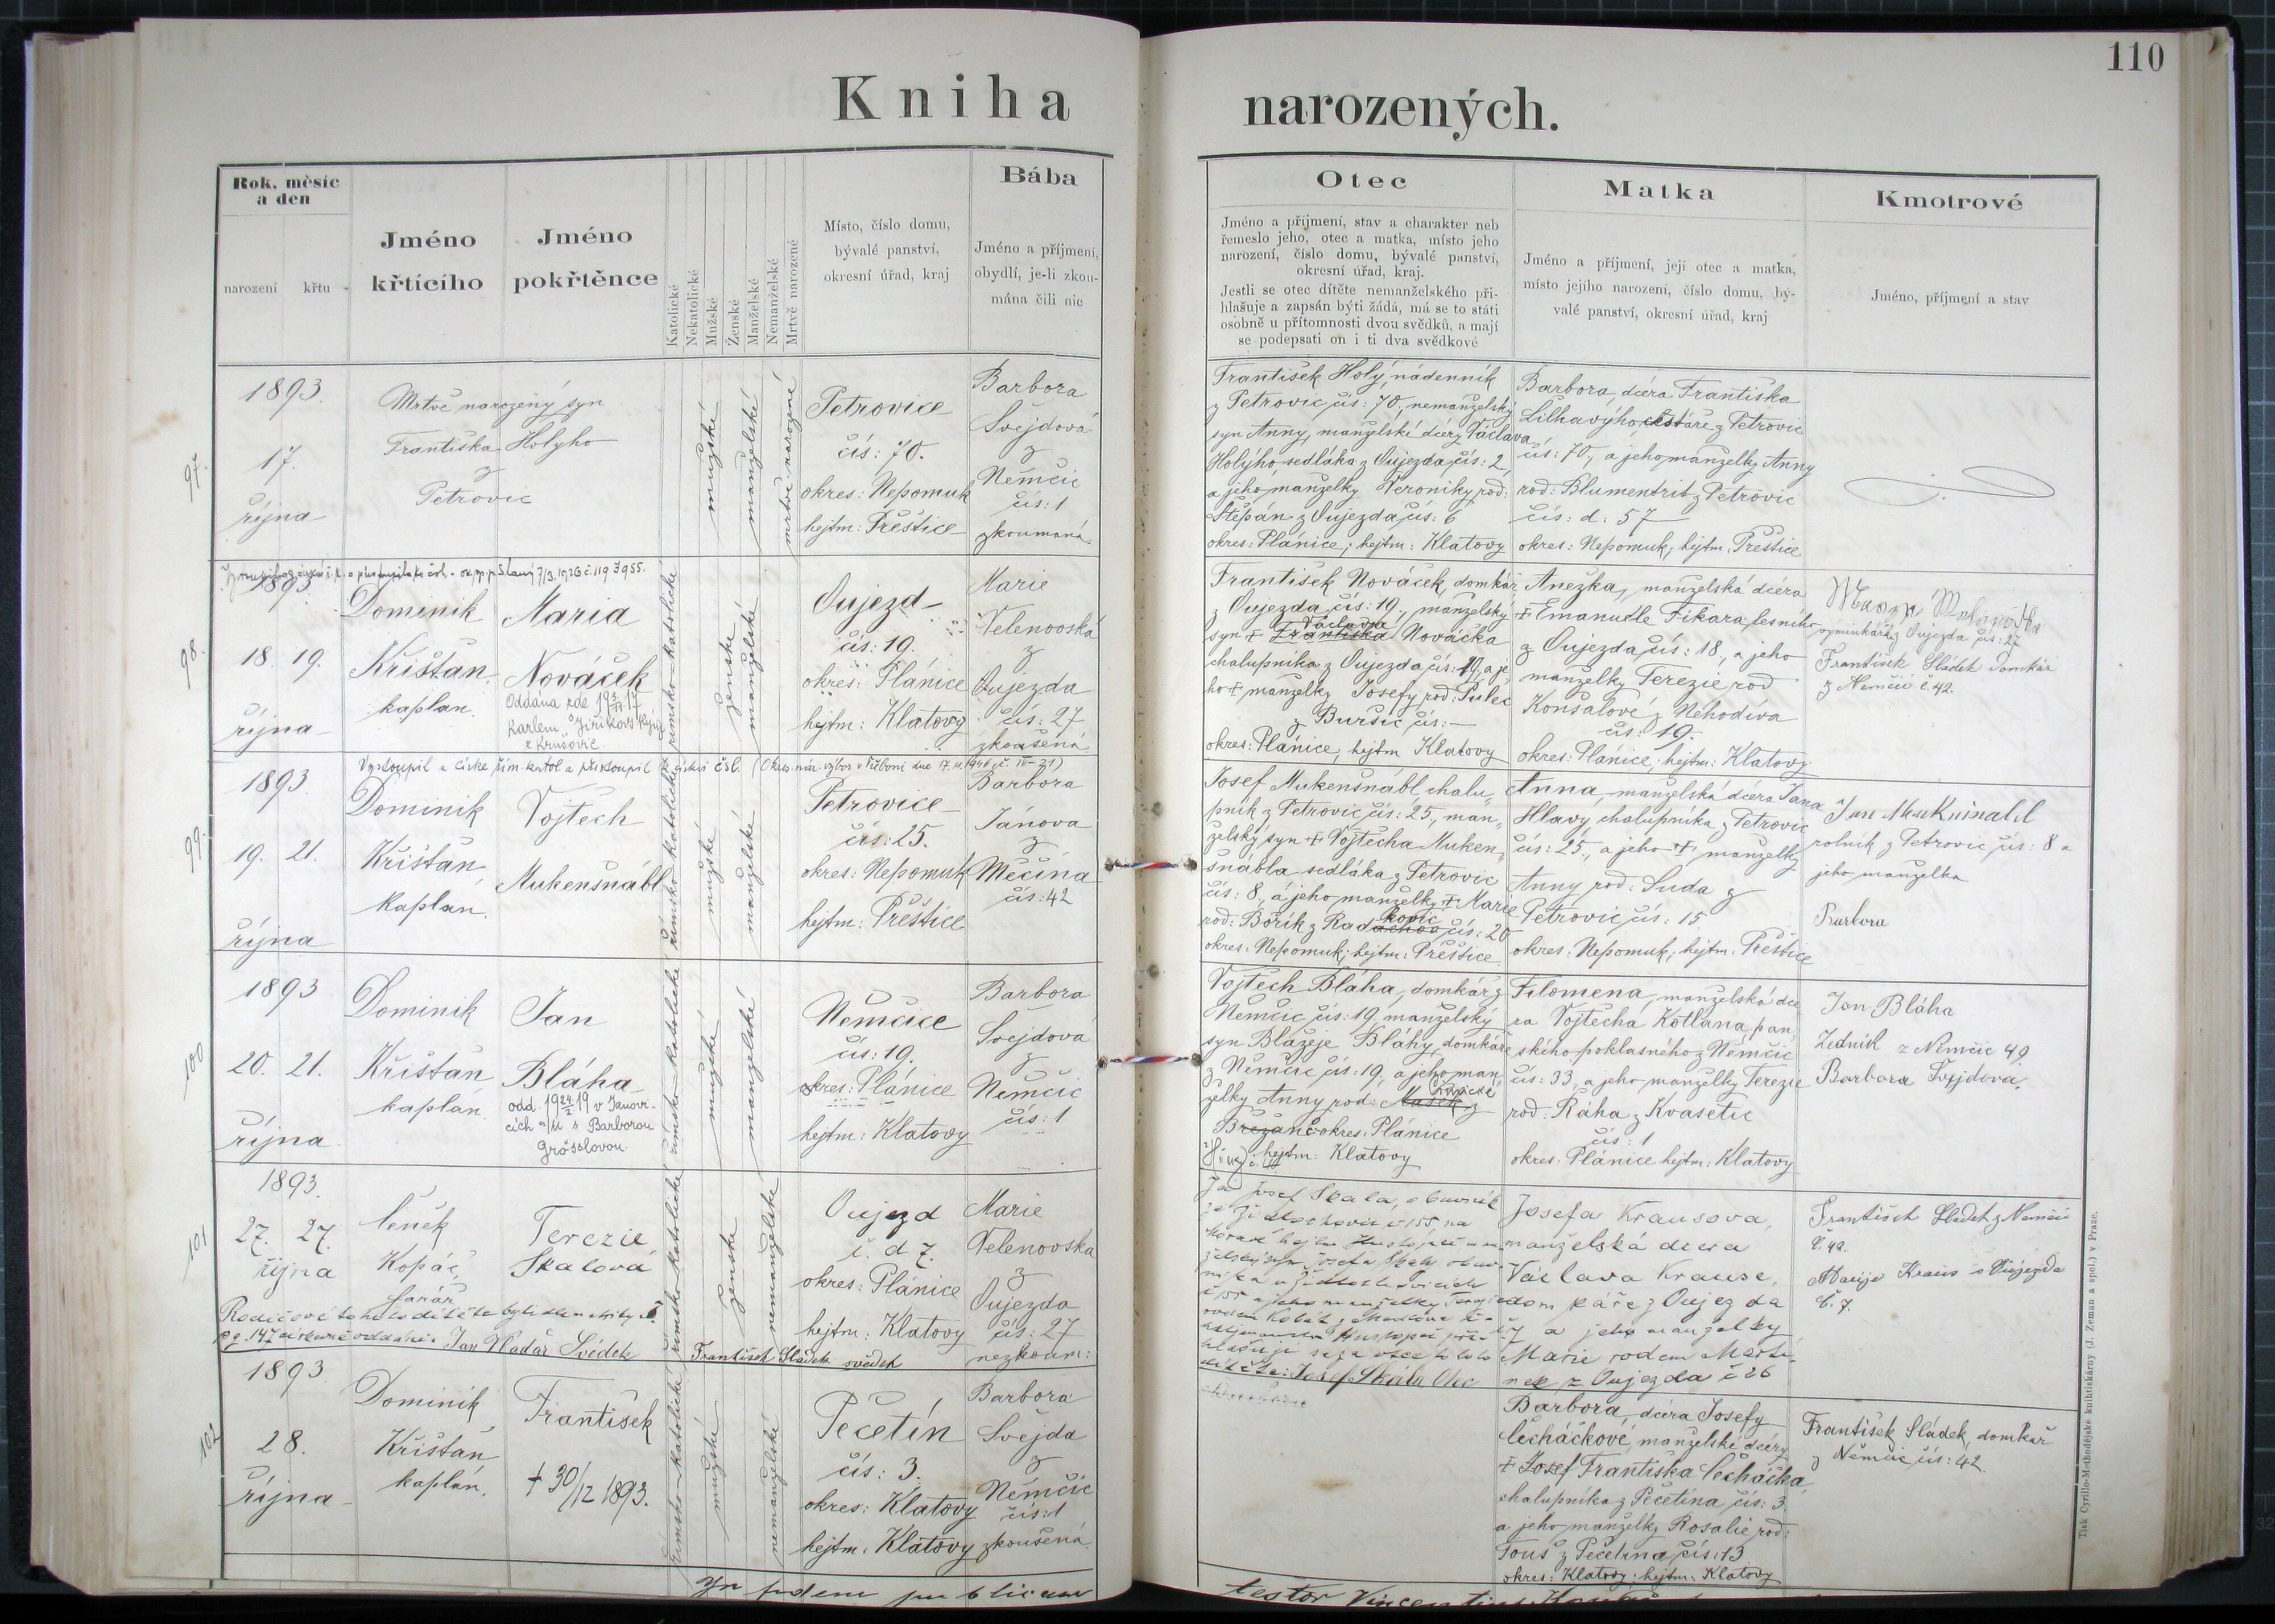 110
Kniha narozených.
Rok, měsíc
a den
narození
křtu
Jméno
křtícího
Jméno
pokřtěnce
Katolické
Nekatolické
Mužské
Ženské
Manželské
Nemanželské
Mrtvě narozené
Místo, číslo domu,
bývalé panství,
okresní úřad, kraj
Bába
Jméno a příjmení,
obydlí, je-li zkou-
mána čili nic
Otec
Jméno a příjmení, stav a charakter neb
řemeslo jeho, otec a matka, místo jeho
narození, číslo domu, bývalé panství,
okresní úřad, kraj.
Jestli se otec dítěte nemanželského při-
hlašuje a zapsán býti žádá, má se to státi
osobně u přítomnosti dvou svědků, a mají
se podepsati on i ti dva svědkové
Matka
Jméno a příjmení, její otec a matka,
místo jejího narození, číslo domu, bý-
valé panství, okresní úřad, kraj
Kmotrové
Jméno, příjmení a stav
97.
1893.
17.
října
Mrtvě narozený syn
Františka Holyho
z
Petrovic
mužské
manželské
mrtvě narozené
Petrovice
čís: 70.
okres: Nepomuk
hejtm: Přeštice
Barbora
Švejdová
z
Němčic
čís: 1
zkoumaná
František Holý, nádenník
z Petrovic čís: 70, nemanželský
syn Anny, manželské dcery Václava
Holýho, sedláka z Oujezda čís: 2,
a jeho manželky Veroniky rod:
Štěpán z Oujezda čís: 6
okres: Plánice; hejtm: Klatovy
Barbora, dcera Františka
z Petrovic
čís: 70, a jeho manželky Anny
rod: Blumentrit z Petrovic
čís: d: 57
okres: Nepomuk; hejtm. Přeštice
98.
1893
18. 19.
října
Dominik
Křišťan
kaplan.
Maria
Nováček
Oddána zde
Karlem Jiříkovským
z Krušovic
římsko-katolické
ženské
manželské
Oujezd
čís: 19.
okres: Plánice
hejtm: Klatovy
Marie
Velenovská
z
Oujezda
čís: 27
zkoušená
František Nováček, domkář
z Oujezda čís: 19., manželský
syn † Václava Františka Nováčka
chalupníka z Oujezda čís: 19, a je-
ho † manželky Josefy rod: Pulec
z Buršic čís: —
okres: Plánice, hejtm Klatovy
Anežka, manželská dcera
† Emanuele Fikara, lesního
z Oujezda čís: 18., a jeho
manželky Terezie rod
Konšalové z Nehodiva
čís: 19.
okres: Plánice; hejtm: Klatovy
z Oujezda čís: 27
František Sládek domkář
z Němčic č. 42.
99.
Vystoupil z církve řím. katol. a přistoupil k církvi čsl.
1893
19. 21.
října
Dominik
Křišťan
kaplan.
Vojtěch
Mukenšnábl
římsko-katolické
mužské
manželské
Petrovice
čís: 25.
okres: Nepomuk
hejtm: Přeštice
Barbora
Jánova
z
Měčína
čís: 42
Josef Mukenšnábl, chalu-
pník z Petrovic čís: 25., man-
želský syn † Vojtěcha Muken-
šnábla sedláka z Petrovic
čís: 8., a jeho manželky † Marie
rod: Bořík z Radkovic čís: 20
okres: Nepomuk; hejtm: Přeštice
Anna, manželská dcera Jana
Hlavy chalupníka z Petrovic
čís: 25, a jeho † manželky
Anny rod: Suda z
Petrovic čís: 15.
okres: Nepomuk; hejtm. Přeštice
rolník z Petrovic čís: 8 a
jeho manželka
Barbora
100
1893
20. 21.
října
Dominik
Křišťan
kaplan
Jan
Bláha
odd. 19 24/2 19 v Janovi-
cích s Barborou
Grösslovou
římsko-katolické
mužské
manželské
Němčice
čís: 19.
okres: Plánice
hejtm: Klatovy
Barbora
Švejdová
z
Němčic
čís: 1
Vojtěch Bláha, domkář z
Němčic čís: 19, manželský
syn Blažeje Bláhy, domkáře
z Němčic čís: 19, a jeho man-
želky Anny rod:
okres: Plánice
hejtm: Klatovy
Filomena, manželská dce-
ra Vojtěcha Kotlana pan-
ského poklasného z Němčic
čís: 33, a jeho manželky Terezie
rod: Ráha z Kvasetic
čís: 1
okres: Plánice hejtm: Klatovy
Jan Bláha
Zedník z Němčic 49
Barbora Švejdova
101
1893.
27. 27.
října
Čeněk
Kopáč,
farář
Terezie
Skalová
římsko-katolické
ženské
nemanželské
Oujezd
č. d 7.
okres: Plánice
hejtm: Klatovy
Marie
Velenovská
z
Oujezda
čís: 27
nezkoum:
Jan Vladař Svědek
František Sládek svědek
Já Josef Skala, obuvník
dítěte: Josef Skála Otec
Josefa Krausova,
manželská dcera
Václava Krause,
domkáře z Oujezda
č 7 a jeho manželky
Marie rodem Marti-
nek z Oujezda č 26
František Sládek z Němčic
č. 42.
Marije Kraus z Oujezda
č. 7.
102
1893
28.
října
Dominik
Křišťan
kaplán.
František
† 30/12 1893.
římsko-katolické
mužské
nemanželské
Pečetín
čís: 3.
okres: Klatovy
hejtm: Klatovy
Barbora
Švejda
z
Němčic
čís: 1
zkoušená
Barbora, dcera Josefy
Čecháčkové, manželské dcery
† Josef Františka Čecháčka
chalupníka z Pečetína čís: 3
a jeho manželky Rosalie rod:
Touš z Pečetína čís: 13
okres: Klatovy; hejtm: Klatovy
František Sládek, domkář
z Němčic čís: 42.
Tisk Cyrillo-Methodějské knihtiskárny (J. Zeman a spol.) v Praze.